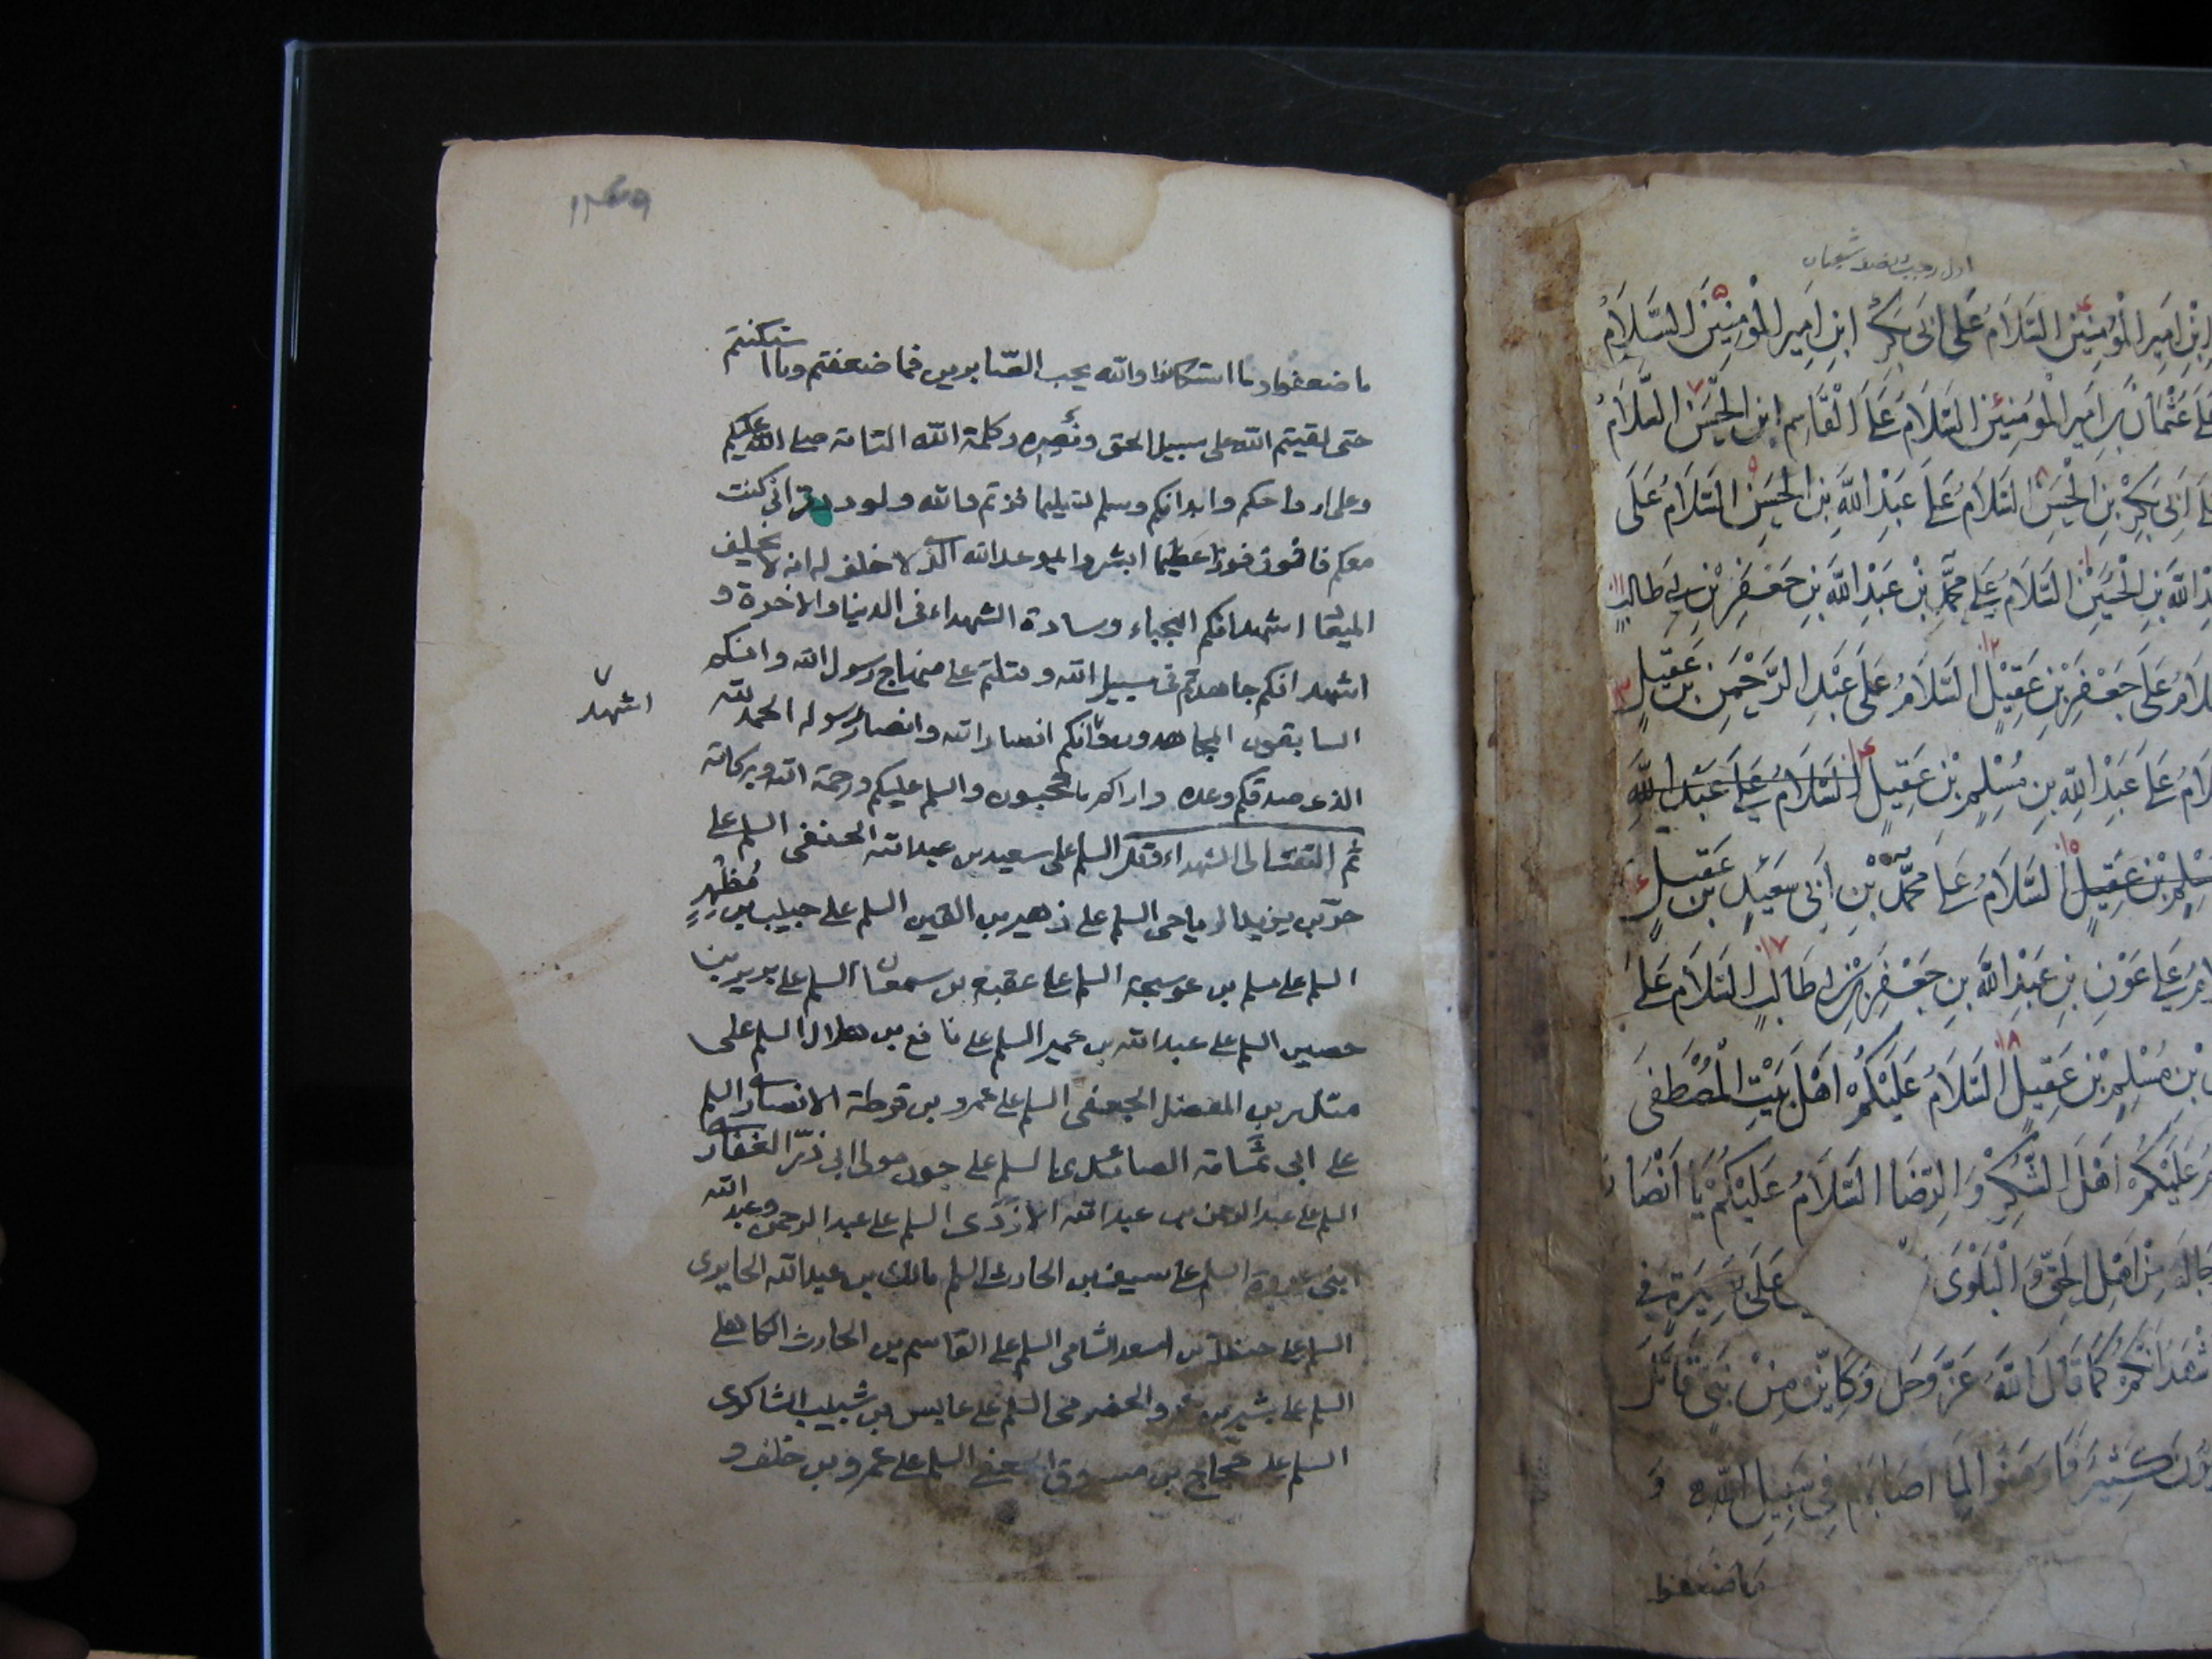 اول رجب و نصف شعبان
ابن امير المؤمنين السلام على ابى بكر ابن امير المؤمنين السلام
على عثمان بن امير المؤمنين السلام على القاسم ابن الحسن السلام
على ابى بكر بن الحسن السلام على عبد الله بن الحسن السلام على
عبد الله بن الحسين السلام على محمد بن عبد الله بن جعفر بن ابى طالب
السلام على جعفر بن عقيل السلام على عبد الرحمن بن عقيل
السلام على عبد الله بن مسلم بن عقيل السلام على عبد الله
مسلم بن عقيل السلام على محمد بن ابى سعيد بن عقيل
السلام على عون بن عبد الله بن جعفر بن ابى طالب السلام على
بن مسلم بن عقيل السلام عليكم اهل بيت المصطفى
السلام عليكم اهل الشكر و الرضا السلام عليكم يا انصار
رجاله من اهل الحق و البلوى على بصيرة فى
اشهد انكم كما قال الله عز وجل وكاين من نبى قاتل
ربيون كثير فما وهنوا لما اصابهم فى سبيل الله و
ما ضعفوا
ما ضعفوا وما استكانوا والله يحب الصابرين فما ضعفتم وما استكنتم
حتى لقيتم الله على سبيل الحق ونصره وكلمة الله التامة صلى الله عليكم
وعلى ارواحكم وابدانكم وسلم تسليما فزتم والله ولوددت انى كنت
معكم فافوز فوزا عظيما ابشروا بموعد الله الذى لا خلف له انه لا يخلف
الميعا اشهد انكم النجباء وسادة الشهداء فى الدنيا والاخرة و
اشهد انكم جاهدتم فى سبيل الله وقتلتم على منهاج رسول الله وانكم
السابقون المجاهدون وانكم انصار الله وانصار رسوله الحمد لله
اشهد
الذى صدقكم وعده واراكم ما تحبون والسلم عليكم ورحمة الله وبركاته
ثم التفت الى الشهداء وقل السلم على سعيد بن عبدالله الحنفى السلم على
حر بن يزيد الرياحى السلم على زهير بن القين السلم على حبيب بن مظهر
السلم على مسلم بن عوسجة السلم على عقبة بن سمعان السلم على برير بن
حصين السلم على عبدالله بن عمير السلم على نافع بن هلال السلم على
منذر بن المفضل الجعفى السلم على عمرو بن قرطة الانصارى السلم
على ابى ثمامة الصائدى السلم على جون مولى ابى ذر الغفارى
السلم على عبدالرحمن بن عبدالله الازدى السلم على عبدالرحمن وعبدالله
ابنى عروة السلم على سيف بن الحارث السلم مالك بن عبدالله الحايرى
السلم على حنظلة بن اسعد الشامى السلم على القاسم بن الحارث الكاهلى
السلم على بشير بن عمرو الحضرمى السلم على عابس بن شبيب الشاكرى
السلم على حجاج بن مسروق الجعفى السلم على عمرو بن خلف و